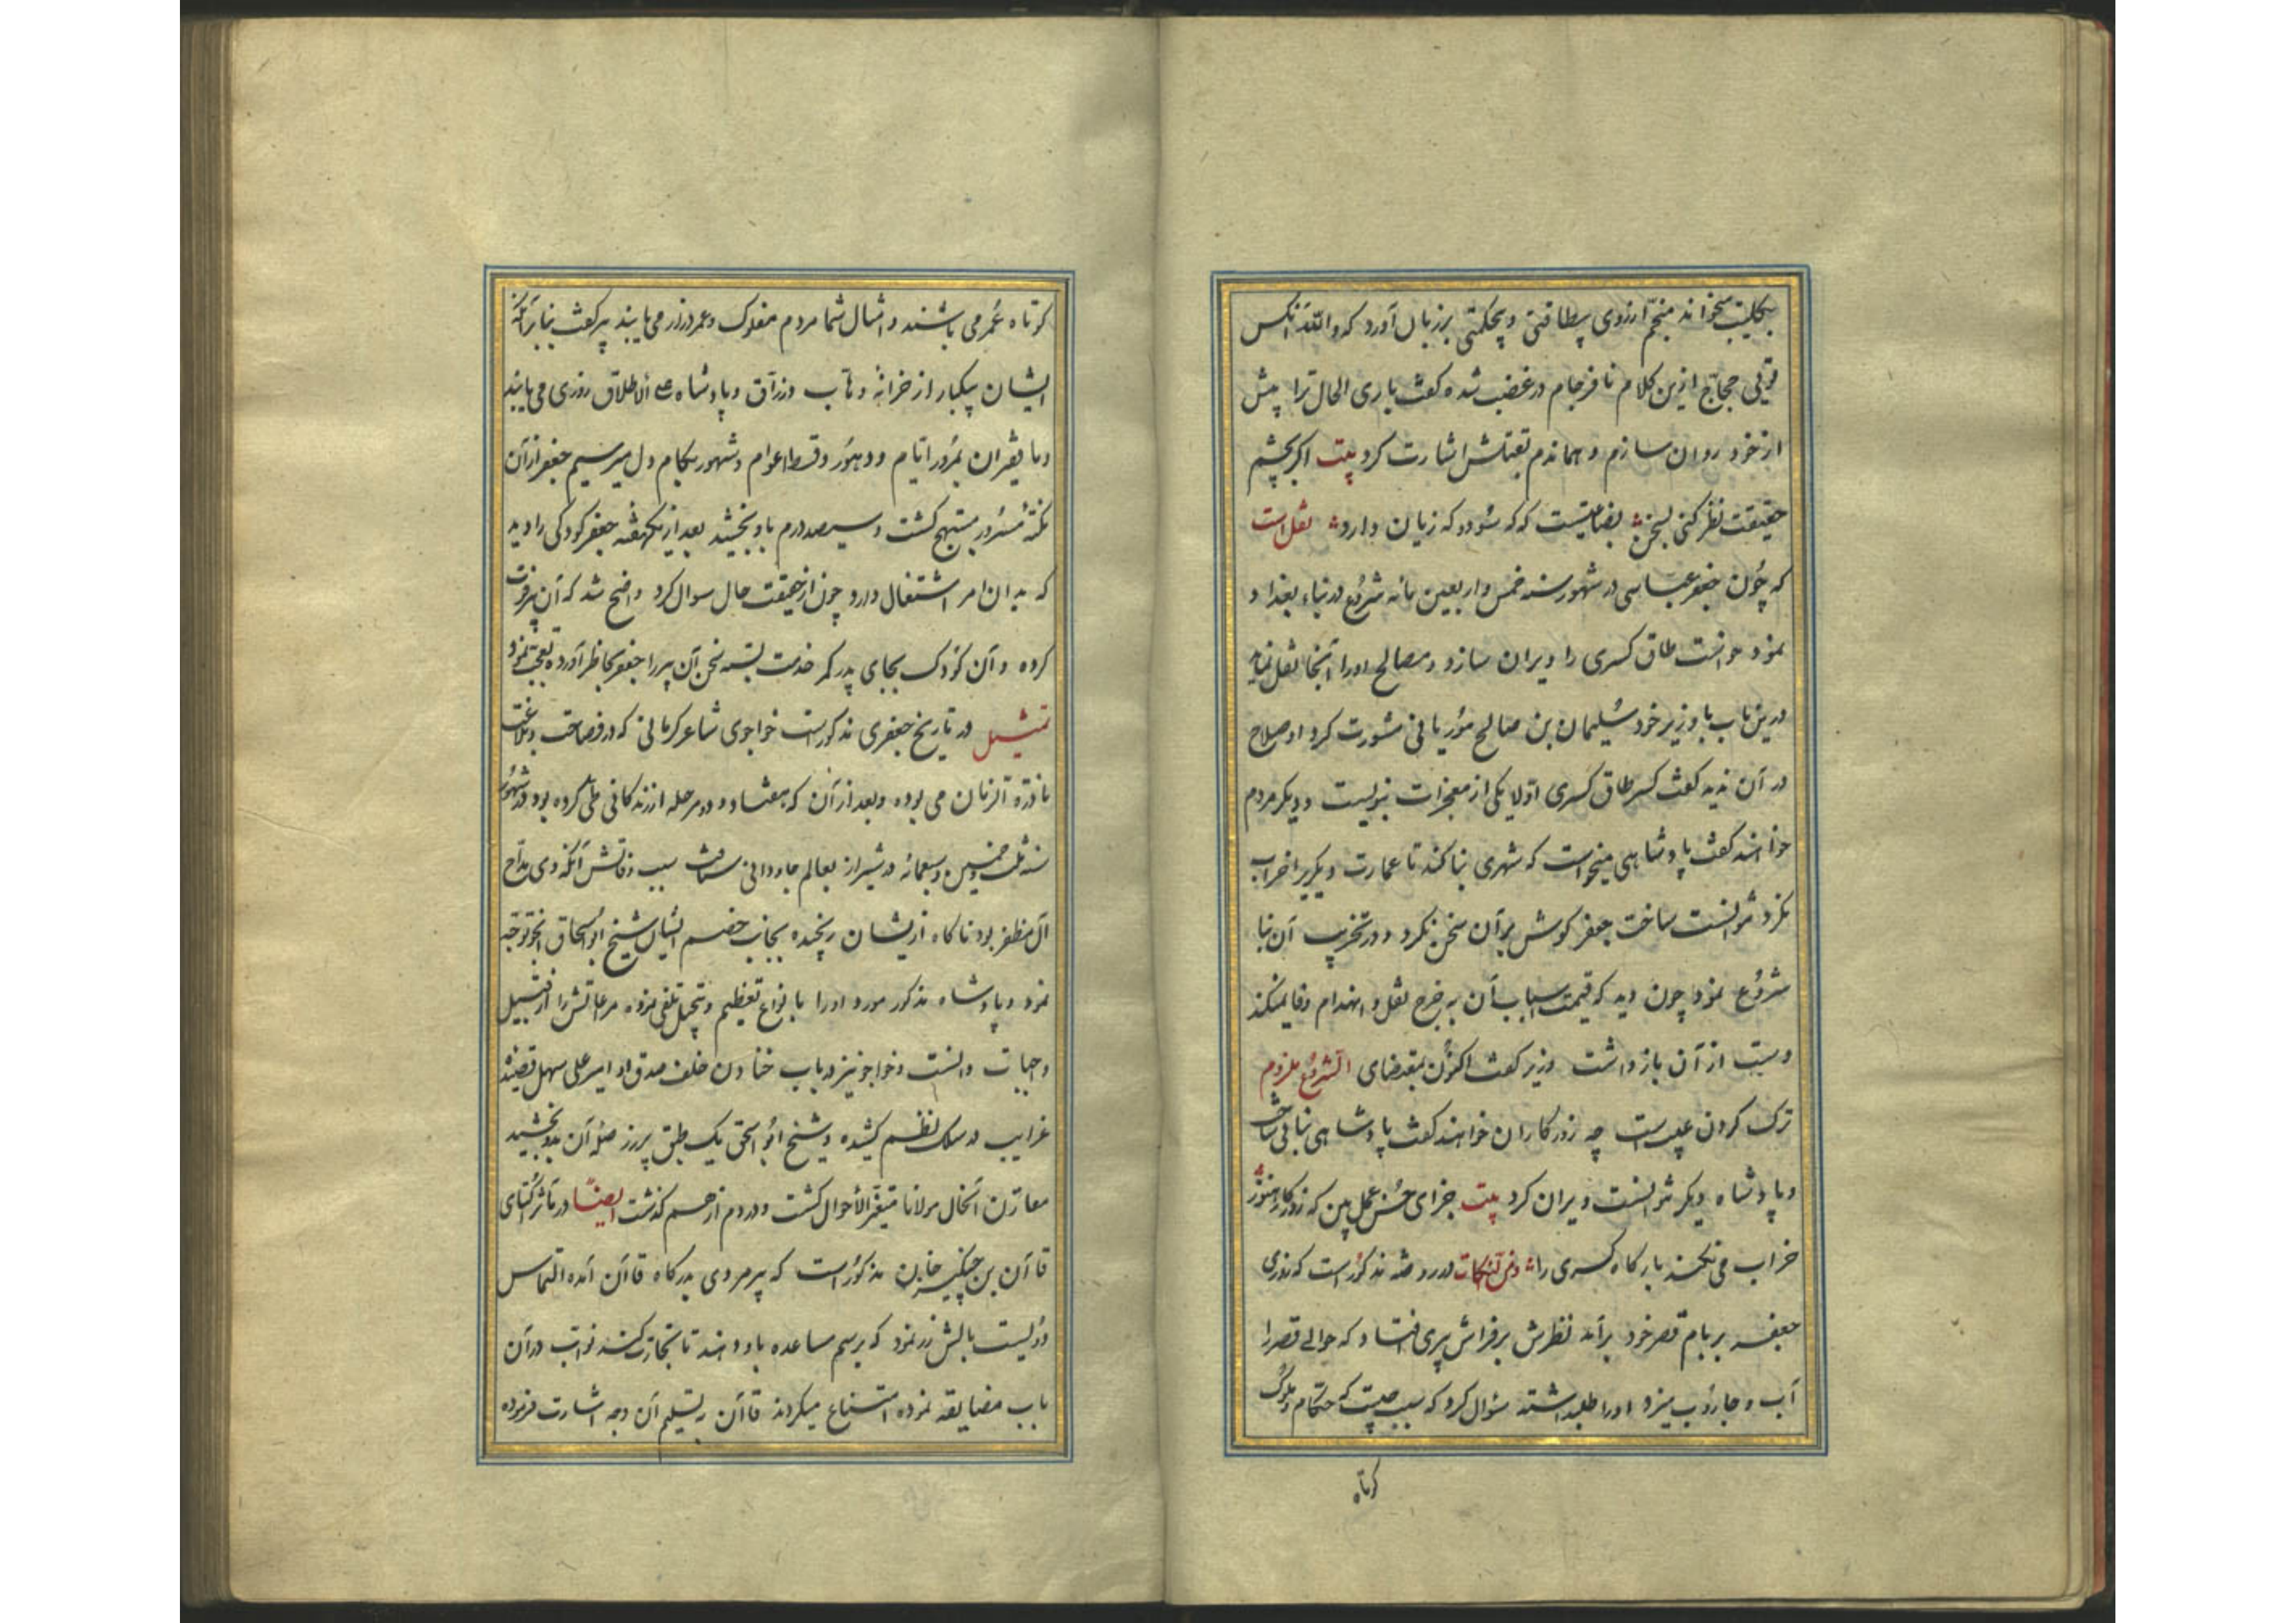 میخواند منجم از روی بیطاقتی و بیحکمتی بر زبان آورد که والله آنکس
تویی حجاج ازین کلام نافرجام در غضب شده گفت باری الحال ترا پیش
از خود روان سازم و هماندم بقتلش اشارت کرد بیت اگر بچشم
حقیقت نظر کنی بسخن بضاعتیست که که سود و که زیان دارد نقل است
که چون جعفر عباسی در شهور سنه خمس و اربعین مائه شروع در بناء بغداد
نمود خواست طاق کسری را ویران سازد و مصالح اورا آنجا نقل نماید
درین باب با وزیر خود سلیمان بن صالح موریانی مشورت کرد او صلاح
در آن ندید گفت کسر طاق کسری اولا یکی از معجزات نبویست و دیگر مردم
خواهند گفت پادشاهی میخواست که شهری بنا کند تا عمارت دیگریرا خراب
نکرد نتوانست ساخت جعفر گوش بر آن سخن نکرد و در تخریب آن بنا
شروع نمود چون دید که قیمت اسباب آن به خرج نقل و انهدام وفا نمیکند
دست از آن باز داشت وزیر گفت اکنون بمقتضای الشروع ملزوم
ترک کردن عیبست چه روزگاران خواهند گفت پادشاهی بنایی ساخت
و پادشاه دیگر نتوانست ویران کرد بیت جزای حسن عمل بین که روزگار هنوز
خراب می نکند بارگاه کسری را در روضه مذکور است که روزی
جعفر بر بام قصر خود برآمد نظرش بر فراش پیری افتاد که حوالی قصر را
آب و جاروب میزد اورا طلب داشته سؤال کرد که سبب چیست که حکام و ملوک
کوتاه
کوتاه عمر می باشند و امثال شما مردم مفلوک و عمر دراز می یابند پیر گفت بنابر آنکه
ایشان یکبار از خزانه وهاب و رزاق و پادشاه علی الاطلاق روزی می یابند
و ما فقیران بمرور ایام و دهور و قسط اعوام و شهور بکام دل میرسیم جعفر از آن
نکته مسرور و مبتهج گشت و سیصد درم باو بخشید بعد از یکهفته جعفر کودکی را دید
که بدان امر اشتغال دارد چون از حقیقت حال سوال کرد واضح شد که آن پیر فوت
کرده و آن کودک بجای پدر کمر خدمت بسته سخن آن پیر را جعفر بخاطر آورده تعجب نمود
تمثیل در تاریخ جعفری مذکورست خواجوی شاعر کرمانی که در فصاحت و بلاغت
نادرة الزمان می بوده و بعد از آن که هفتاد و دو مرحله از زندگانی طی کرده بود در شهور
سنه ثلث و خمسین و سبعمائه در شیراز بعالم جاودانی شتافت سبب وفاتش آنکه وی مداح
آل مظفر بود ناگاه از یشان رنجیده بجانب خصم ایشان شیخ ابواسحاق اینجو توجه
نمود و پادشاه مذکور مورد اورا با نواع تعظیم و تبجیل تلقی نموده مرعاتش را از قبیل
واجبات دانست و خواجو نیز در باب ختادن خلف صدق او امیر علی سهل قصیده
غرایب در سلک نظم کشیده و شیخ ابو اسحق یک طبق پر زر صله آن بدو بخشید
مقارن آنحال مولانا متغیر الأحوال گشت و در دم از هم گذشت ایضاً در مآثر اکتای
قاآن بن چنگیز خان مذکورست که پیر مردی بدرگاه قاآن آمده التماس
دویست بالش زر نمود که برسم مساعده باو دهند تا تجارت کند نواب در آن
باب مضایقه نموده امتناع میکردند قاآن بتسلیم آن وجه اشارت فرموده